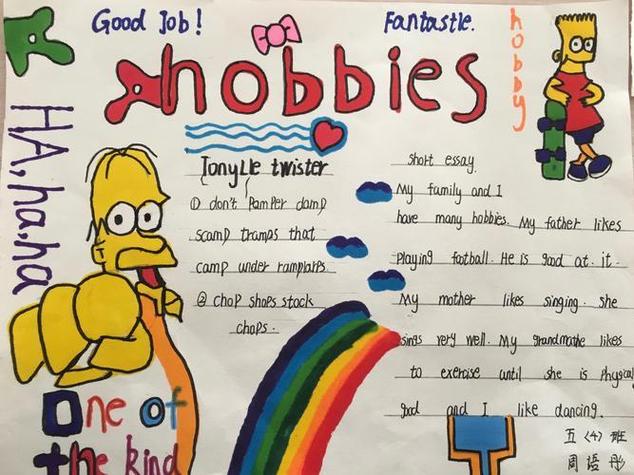 Good Job!
Fantastle.
hobbies
hobby
HA,ha,ha
Tongue twister
① don't pamper damp
scamp tramps that
camp under ramplarps.
② chop shops stock
chops.
short essay.
My family and I
have many hobbies. My father likes
playing football. He is good at. it.
My mother likes singing. she
sings very well. My grandmathe likes
to exercise until she is physical
good and I like dancing.
One of
the kind
五〈4〉班
周语彤